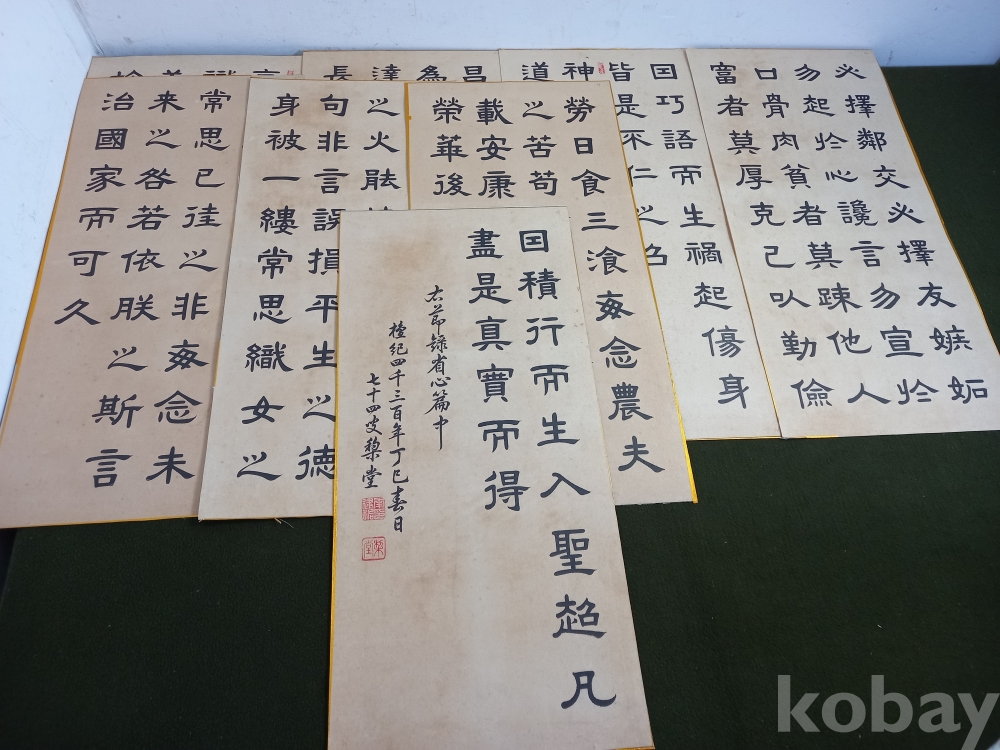 必擇鄰交必擇友嫉妬
勿起於心讒言勿宣於
口骨肉貧者莫踈他人
富者莫厚克己以勤儉
因巧語而生禍起傷身
皆是不仁之
神
道
昌
為
達
長
識
善
勞日食三飱每念農夫
之苦苟
載安康
榮華後
之火能
句非言誤損平生之德
身被一縷常思織女之
常思已往之非每念未
来之咎若依朕之斯言
治國家而可久
因積行而生入聖超凡
盡是真實而得
右節錄省心篇中
檀紀四千三百年丁巳春日
七十四叟棃堂
kobay